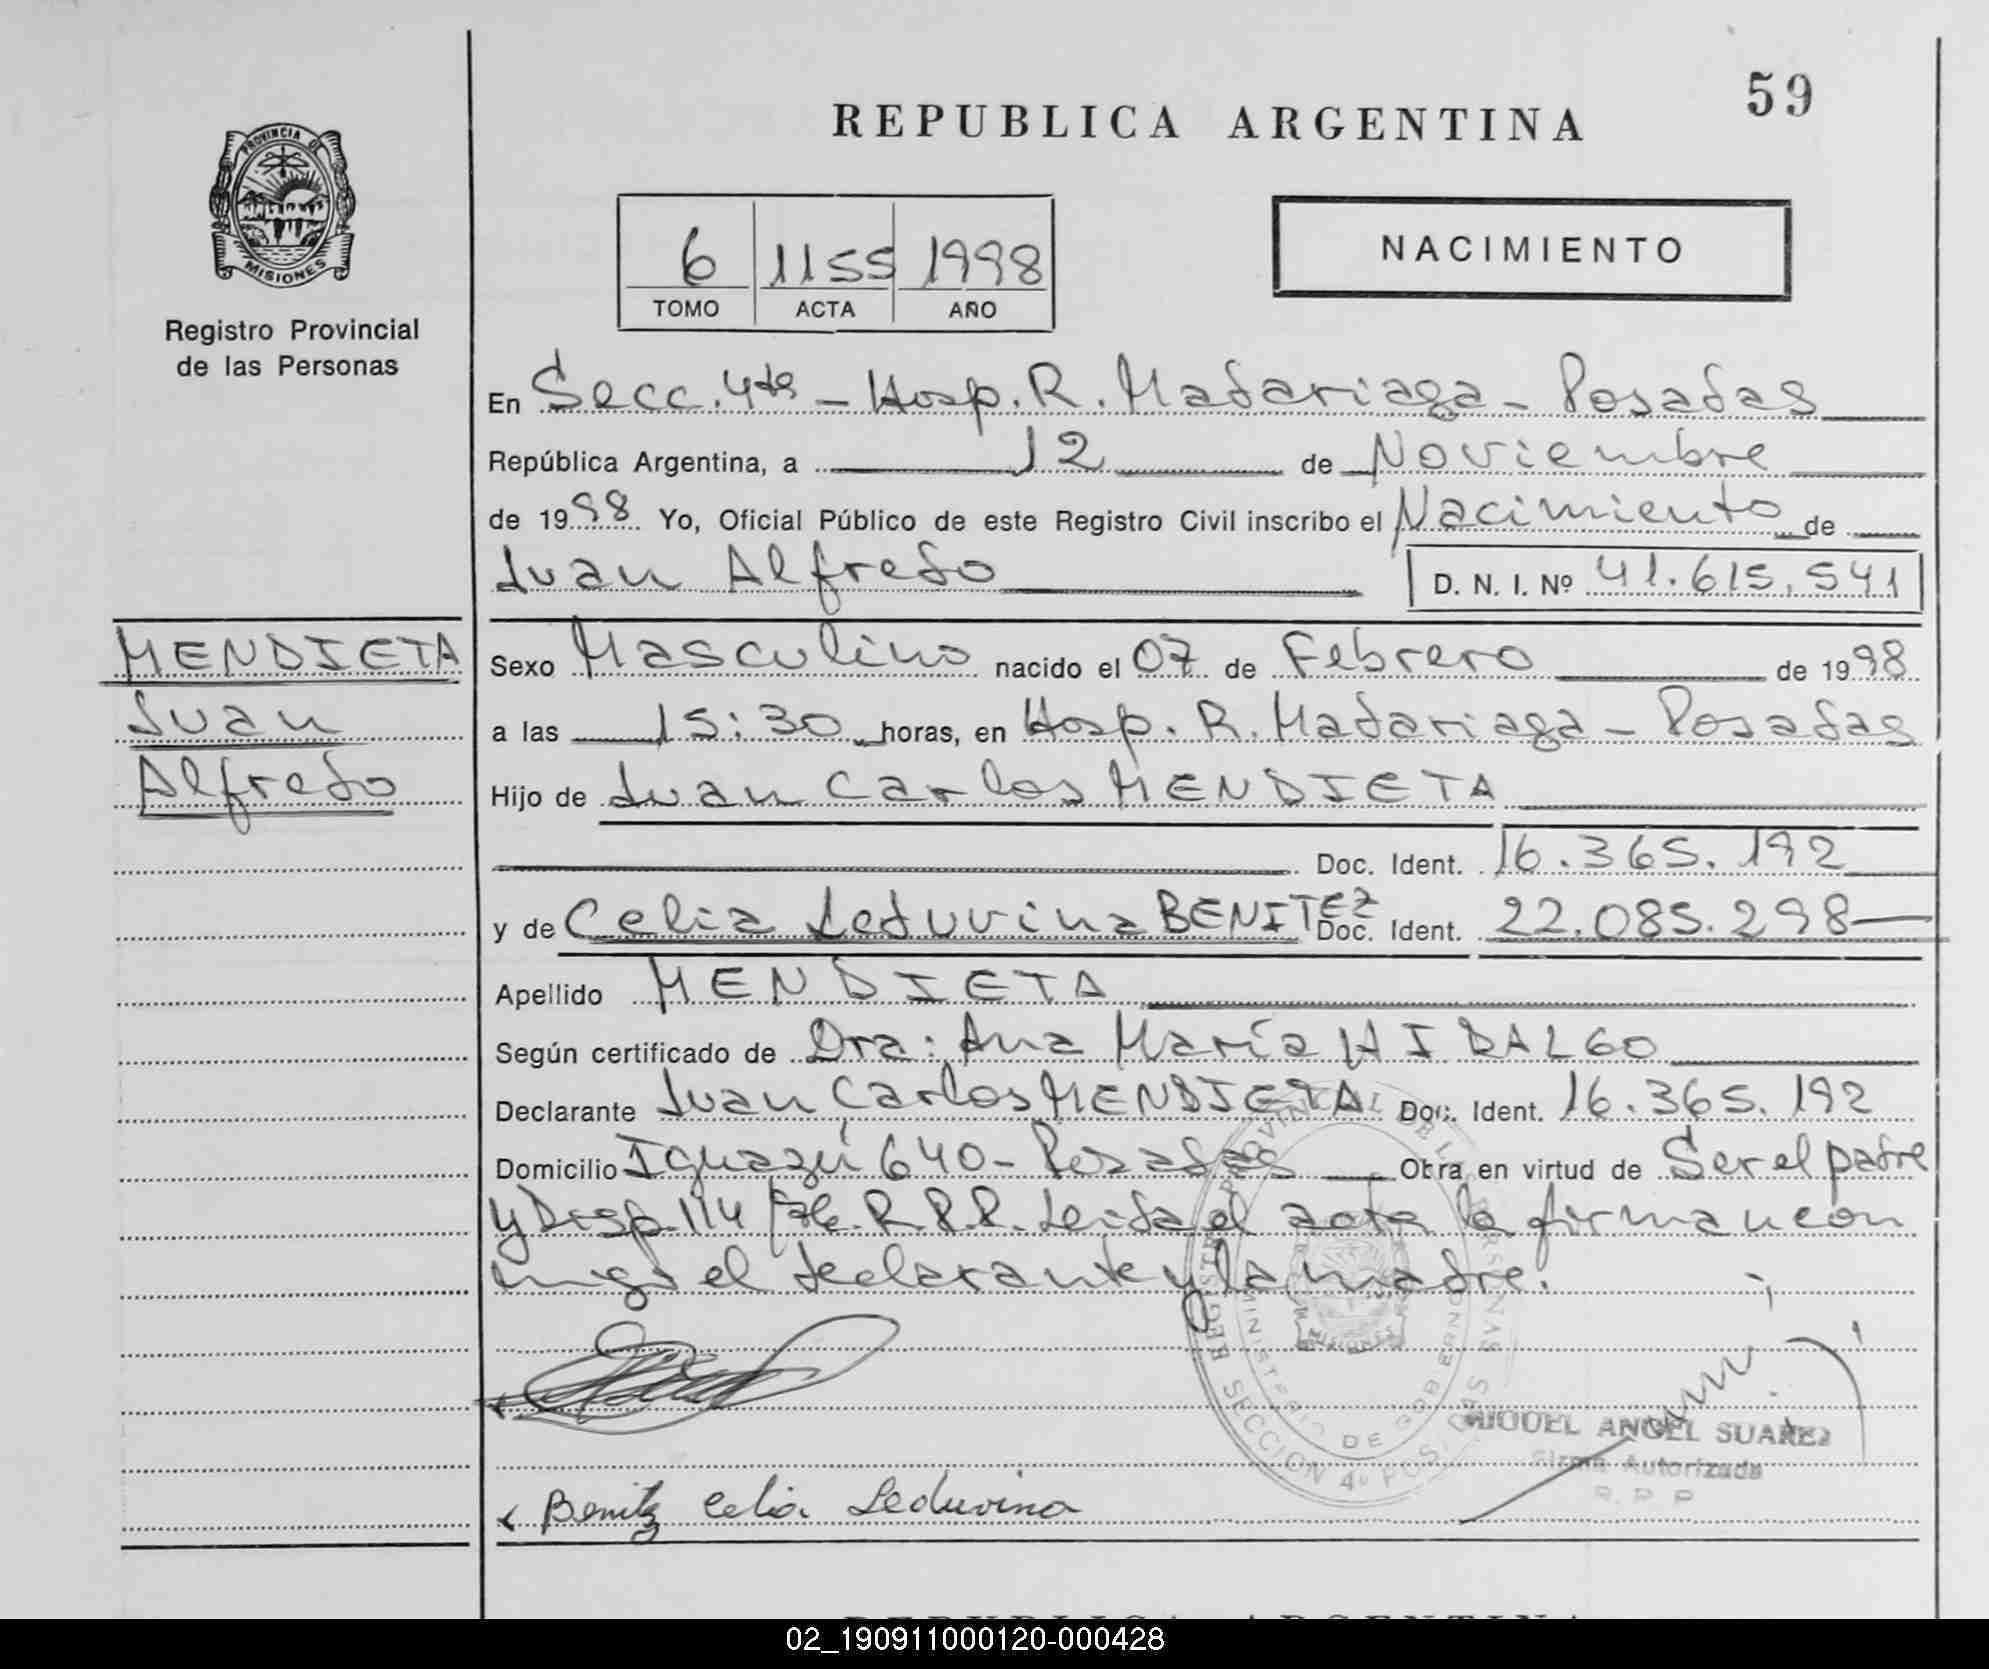 59
REPUBLICA ARGENTINA
PROVINCIA DE
MISIONES
Registro Provincial
de las Personas
6 1155 1998
TOMO ACTA AÑO
NACIMIENTO
En Secc. 4ta - Hosp. R. Madariaga - Posadas
República Argentina, a 12 de Noviembre
de 1998 Yo, Oficial Público de este Registro Civil inscribo el Nacimiento de
Juan Alfredo D. N. I. Nº 41.615.541
MENDIETA
Juan
Alfredo
Sexo Masculino nacido el 07 de Febrero de 1998
a las 15:30 horas, en Hosp. R. Madariaga - Posadas
Hijo de Juan Carlos MENDIETA
Doc. Ident. 16.365.192
y de Celia Leduvina BENITEZ Doc. Ident. 22.085.298
Apellido MENDIETA
Según certificado de Dra: Ana María HIDALGO
Declarante Juan Carlos MENDIETA Doc. Ident. 16.365.192
Domicilio Iguazú 640 - Posadas Obra en virtud de Ser el padre
y Disp. 114 R.P.P. Leida el acta la firman con
migo el declarante y la madre.
MINISTERIO DE GOBIERNO
MISIONES
SECCION 4º POS.
MIGUEL ANGEL SUAREZ
Firma Autorizada
R. P. P
Benitez Celia Leduvina
REPUBLICA ARGENTINA
02_190911000120-000428